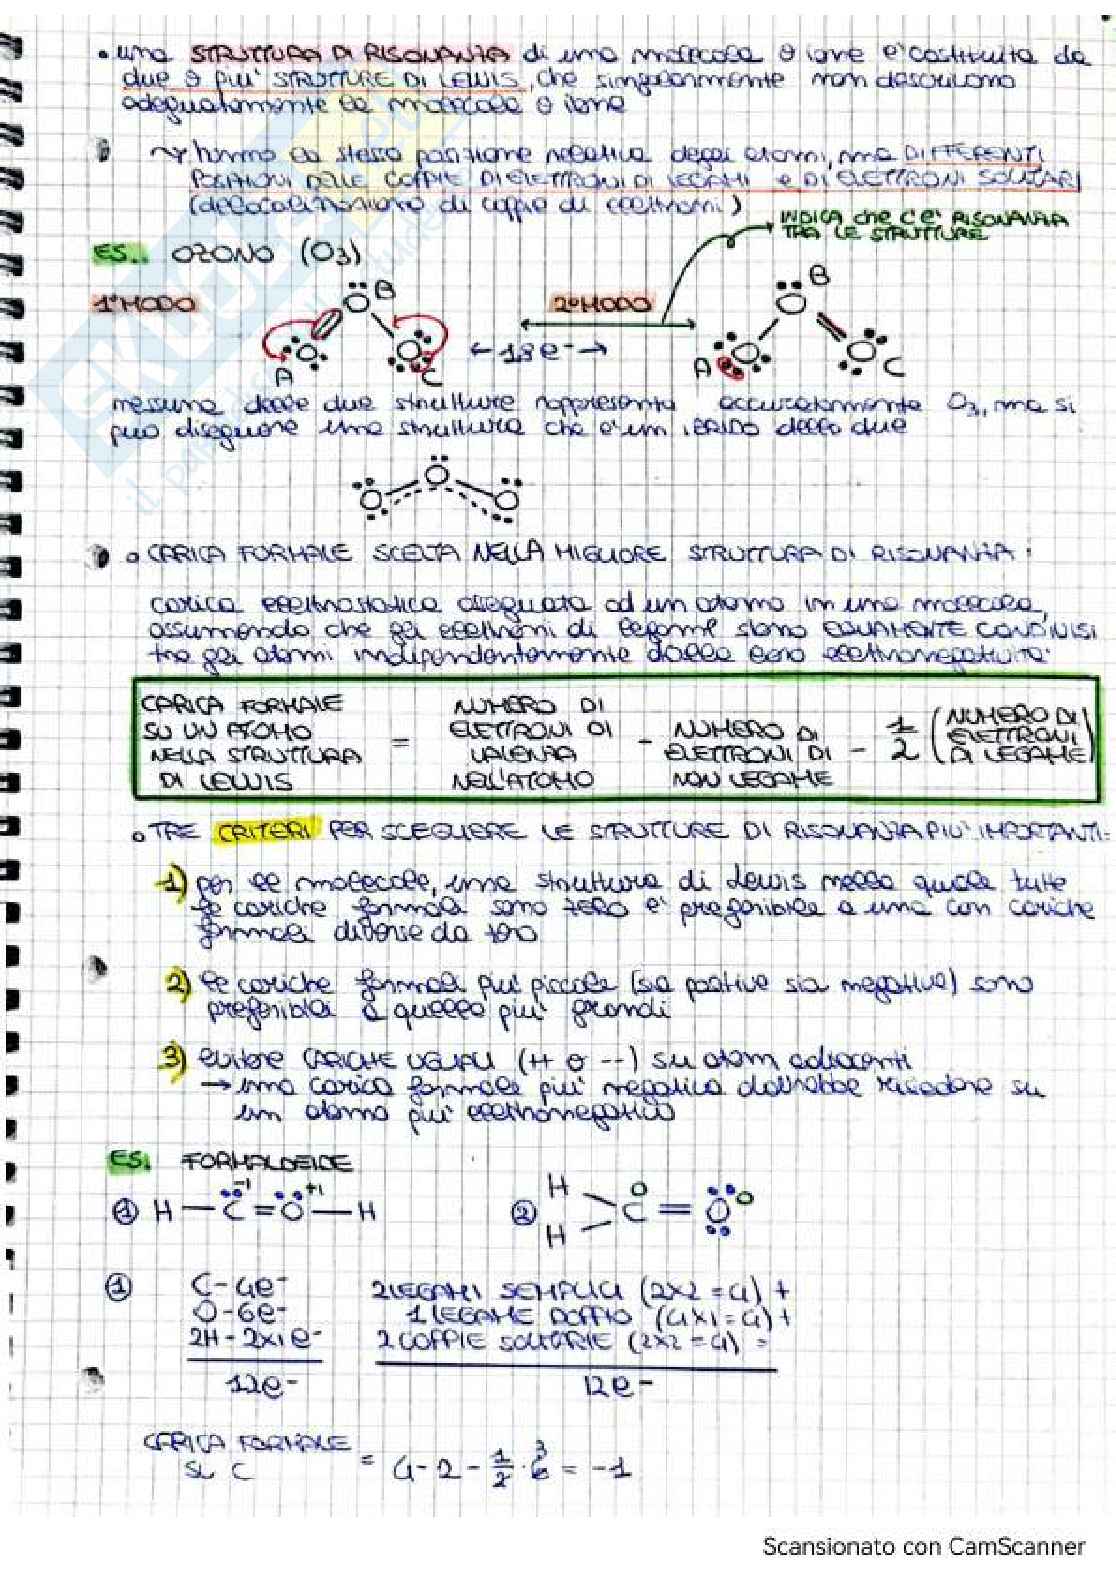 • una STRUTTURA DI RISONANZA di una molecola o ione e' costituita da
due o piu' STRUTTURE DI LEWIS, che singolarmente non descrivono
adeguatamente la molecola o ione
~> hanno la stessa posizione relativa degli atomi, ma DIFFERENTI
POSIZIONI DELLE COPPIE DI ELETTRONI DI LEGAMI e DI ELETTRONI SOLITARI
(delocalizzazione di coppie di elettroni)
INDICA che c'e' RISONANZA
TRA LE STRUTTURE
ES.. OZONO (O3)
1° MODO
2° MODO
O B
O A
O C
← 18e⁻ →
O B
A O
O C
nessuna delle due strutture rappresenta accuratamente O3, ma si
puo disegnare una struttura che e' un IBRIDO delle due
O O O
• CARICA FORMALE SCELTA NELLA MIGLIORE STRUTTURA DI RISONANZA:
carica elettrostatica assegnata ad un atomo in una molecola,
assumendo che gli elettroni di legame siano EQUAMENTE CONDIVISI
tra gli atomi indipendentemente dalla loro elettronegativita'
CARICA FORMALE SU UN ATOMO NELLA STRUTTURA DI LEWIS = NUMERO DI ELETTRONI DI VALENZA NELL'ATOMO - NUMERO DI ELETTRONI DI NON LEGAME - 1/2 (NUMERO DI ELETTRONI DI LEGAME)
• TRE CRITERI PER SCEGLIERE LE STRUTTURE DI RISONANZA PIU' IMPORTANTI:
1) per le molecole, una struttura di Lewis nella quale tutte
le cariche formali sono ZERO e' preferibile a una con cariche
formali diverse da zero
2) le cariche formali piu' piccole (sia positive sia negative) sono
preferibili a quelle piu' grandi
3) evitare CARICHE UGUALI (++ o --) su atomi adiacenti
→ una carica formale piu' negativa dovrebbe risiedere su
un atomo piu' elettronegativo
ES. FORMALDEIDE
① H — C⁻¹ = O⁺¹ — H
② H H C⁰ = O⁰
① C - 4e⁻ 2 LEGAMI SEMPLICI (2x2=4) +
O - 6e⁻ 1 LEGAME DOPPIO (4x1=4) +
2H - 2x1e⁻ 2 COPPIE SOLITARIE (2x2=4) =
12e⁻ 12e⁻
CARICA FORMALE
SU C = 4-2-1/2·6 3 = -1
Scansionato con CamScanner